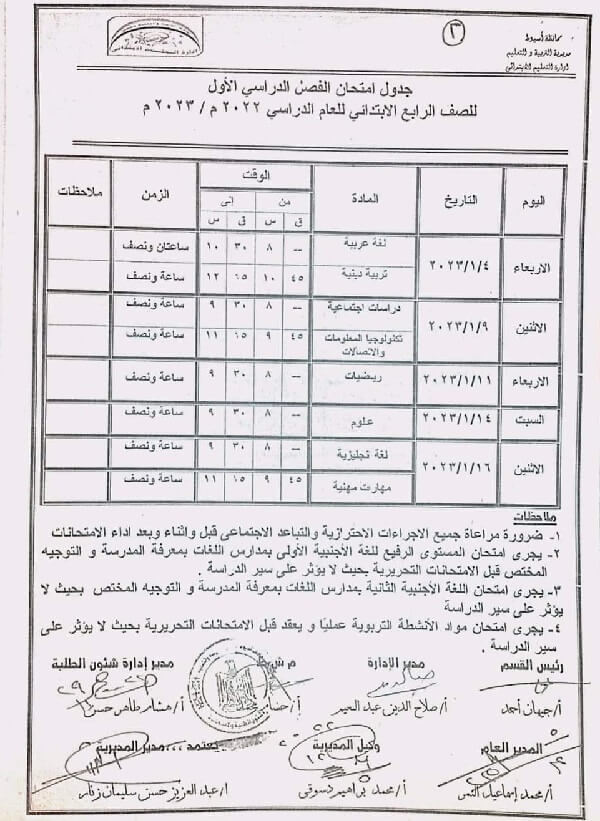 محافظة أسيوط
مديرية التربية و التعليم
ادارة التعليم الابتدائى
٣
جدول امتحان الفصل الدراسي الأول
للصف الرابع الابتدائي للعام الدراسي ٢٠٢٢ م / ٢٠٢٣ م
اليوم التاريخ المادة الوقت الزمن ملاحظات
من إلى
ق س ق س
الاربعاء ٢٠٢٣/١/٤ لغة عربية -- ٨ ٣٠ ١٠ ساعتان ونصف
تربية دينية ٤٥ ١٠ ١٥ ١٢ ساعة ونصف
الاثنين ٢٠٢٣/١/٩ دراسات اجتماعية -- ٨ ٣٠ ٩ ساعة ونصف
تكنولوجيا المعلومات والاتصالات ٤٥ ٩ ١٥ ١١ ساعة ونصف
الاربعاء ٢٠٢٣/١/١١ رياضيات -- ٨ ٣٠ ٩ ساعة ونصف
السبت ٢٠٢٣/١/١٤ علوم -- ٨ ٣٠ ٩ ساعة ونصف
الاثنين ٢٠٢٣/١/١٦ لغة نجليزية -- ٨ ٣٠ ٩ ساعة ونصف
مهارت مهنية ٤٥ ٩ ١٥ ١١ ساعة ونصف
ملاحظات
١- ضرورة مراعاة جميع الاجراءات الاحترازية والتباعد الاجتماعى قبل واثناء وبعد اداء الامتحانات
٢- يجرى امتحان المستوى الرفيع للغة الأجنبية الأولى بمدارس اللغات بمعرفة المدرسة و التوجيه
المختص قبل الامتحانات التحريرية بحيث لا يؤثر على سير الدراسة .
٣- يجرى امتحان اللغة الأجنبية الثانية بمدارس اللغات بمعرفة المدرسة و التوجيه المختص بحيث لا
يؤثر على سير الدراسة
٤- يجرى امتحان مواد الأنشطة التربوية عمليا و يعقد قبل الامتحانات التحريرية بحيث لا يؤثر على
سير الدراسة .
رئيس القسم مدير الإدارة م ش ط مدير إدارة شئون الطلبة
أ/ جيهان أحمد أ/ صلاح الدين عبد المجيد أ/ هشام طاهر حسن
المدير العام وكيل المديرية يعتمد ،،، مدير المديرية
أ/ محمد إسماعيل أ/ محمد إبراهيم دسوقى أ/ عبد العزيز حسن سليمان